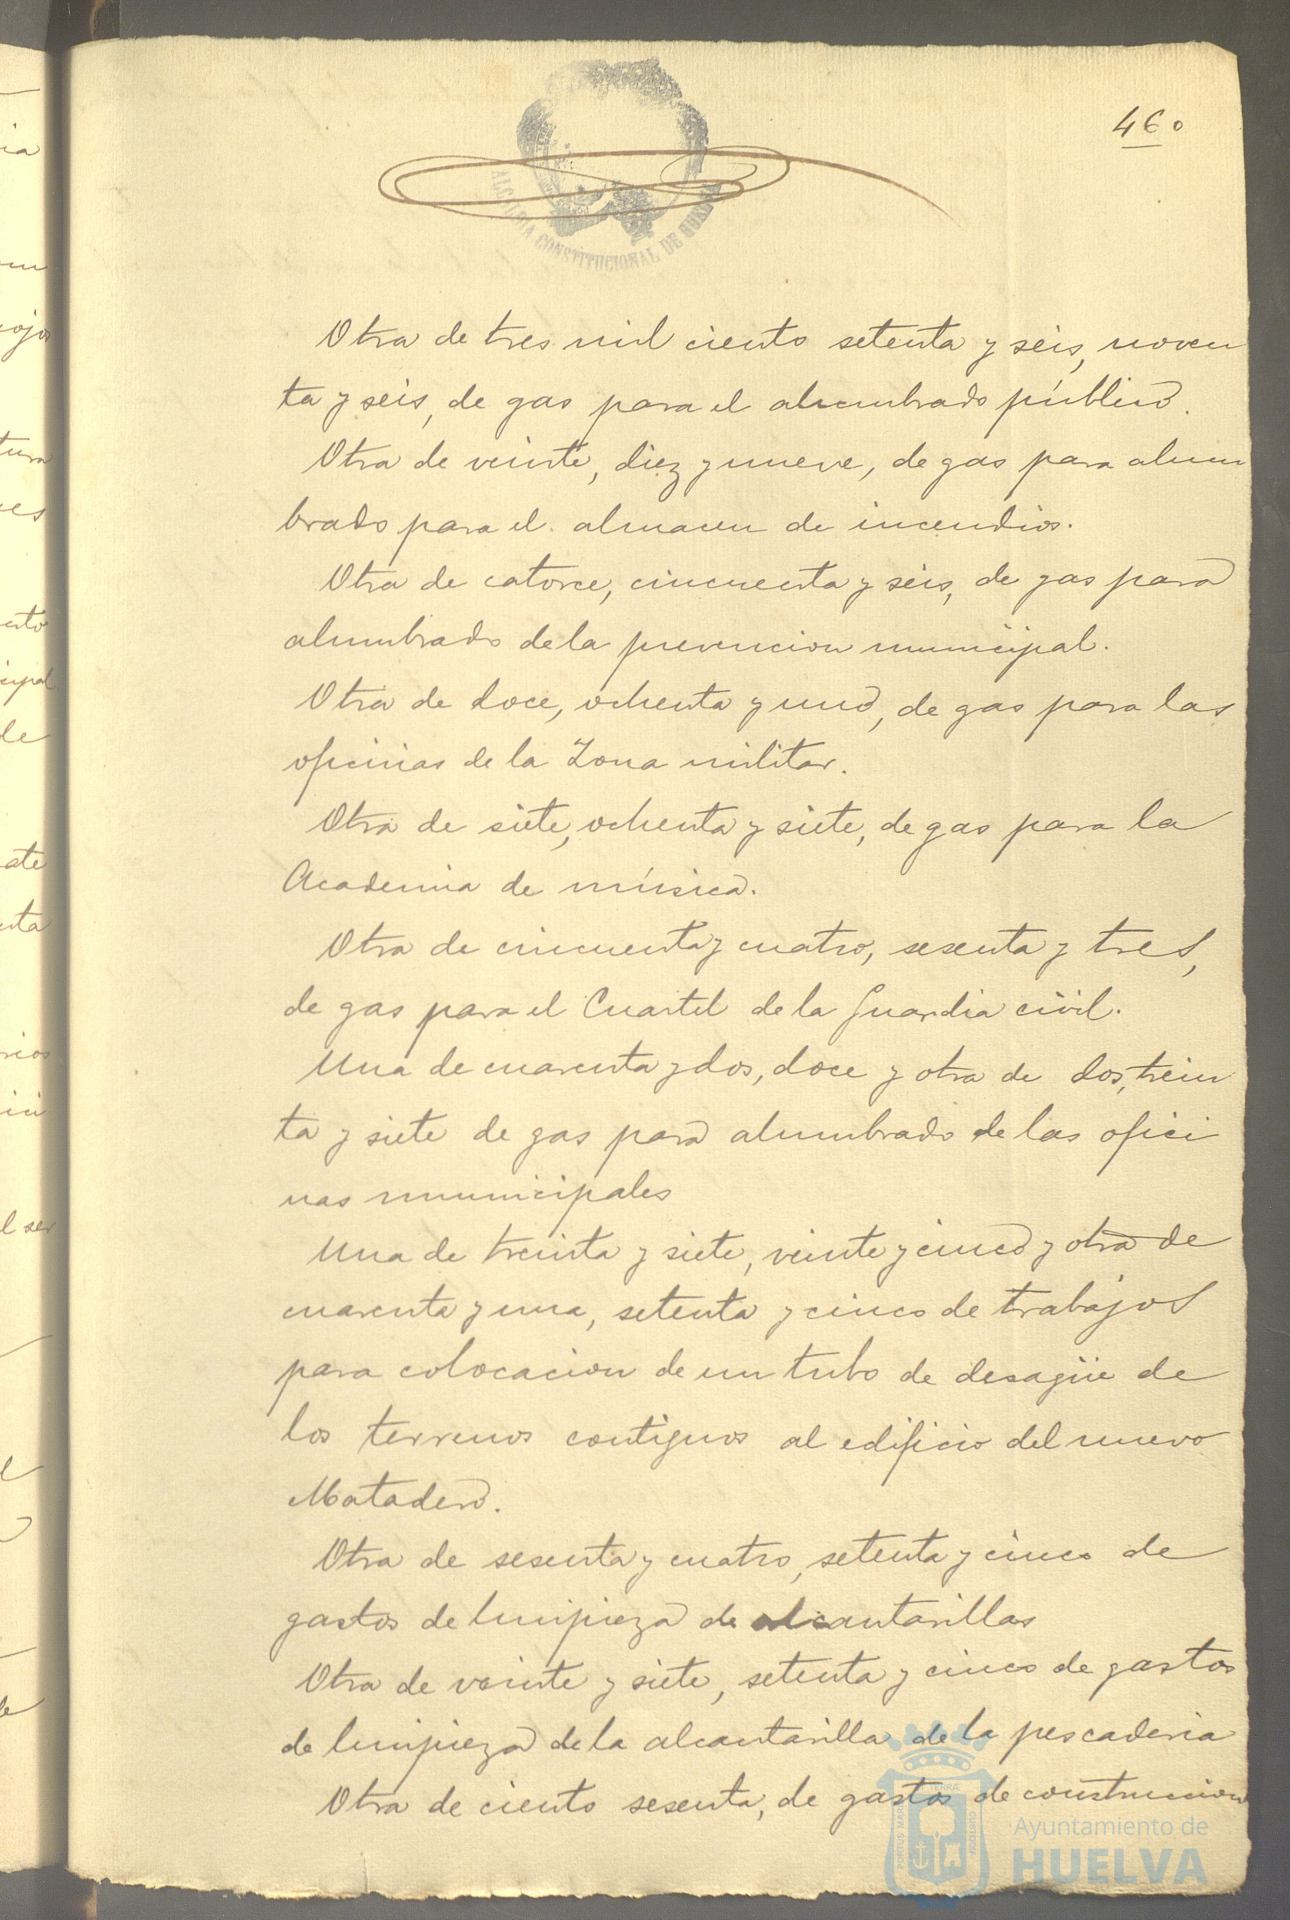 46º
ALCALDIA CONSTITUCIONAL DE HUELVA
Otra de tres mil ciento setenta y seis, noven
ta y seis, de gas para el alumbrado público.
Otra de veinte, diez y nueve, de gas para alum
brado para el almacen de incendios.
Otra de catorce, cincuenta y seis, de gas para
alumbrado de la prevencion municipal.
Otra de doce, ochenta y uno, de gas para las
oficinas de la Zona militar.
Otra de siete, ochenta y siete, de gas para la
Academia de música.
Otra de cincuenta y cuatro, sesenta y tres,
de gas para el Cuartel de la Guardia civil.
Una de cuarenta y dos, doce y otra de dos, trein
ta y siete de gas para alumbrado de las ofici
nas municipales
Una de treinta y siete, veinte y cinco y otra de
cuarenta y una, setenta y cinco de trabajos
para colocacion de un tubo de desagüe de
los terrenos contiguos al edificio del nuevo
Matadero.
Otra de sesenta y cuatro, setenta y cinco de
gastos de limpieza de alcantarillas
Otra de veinte y siete, setenta y cinco de gastos
de limpieza de la alcantarilla de la pescaderia
Otra de ciento sesenta, de gastos de construccion
Ayuntamiento de
HUELVA